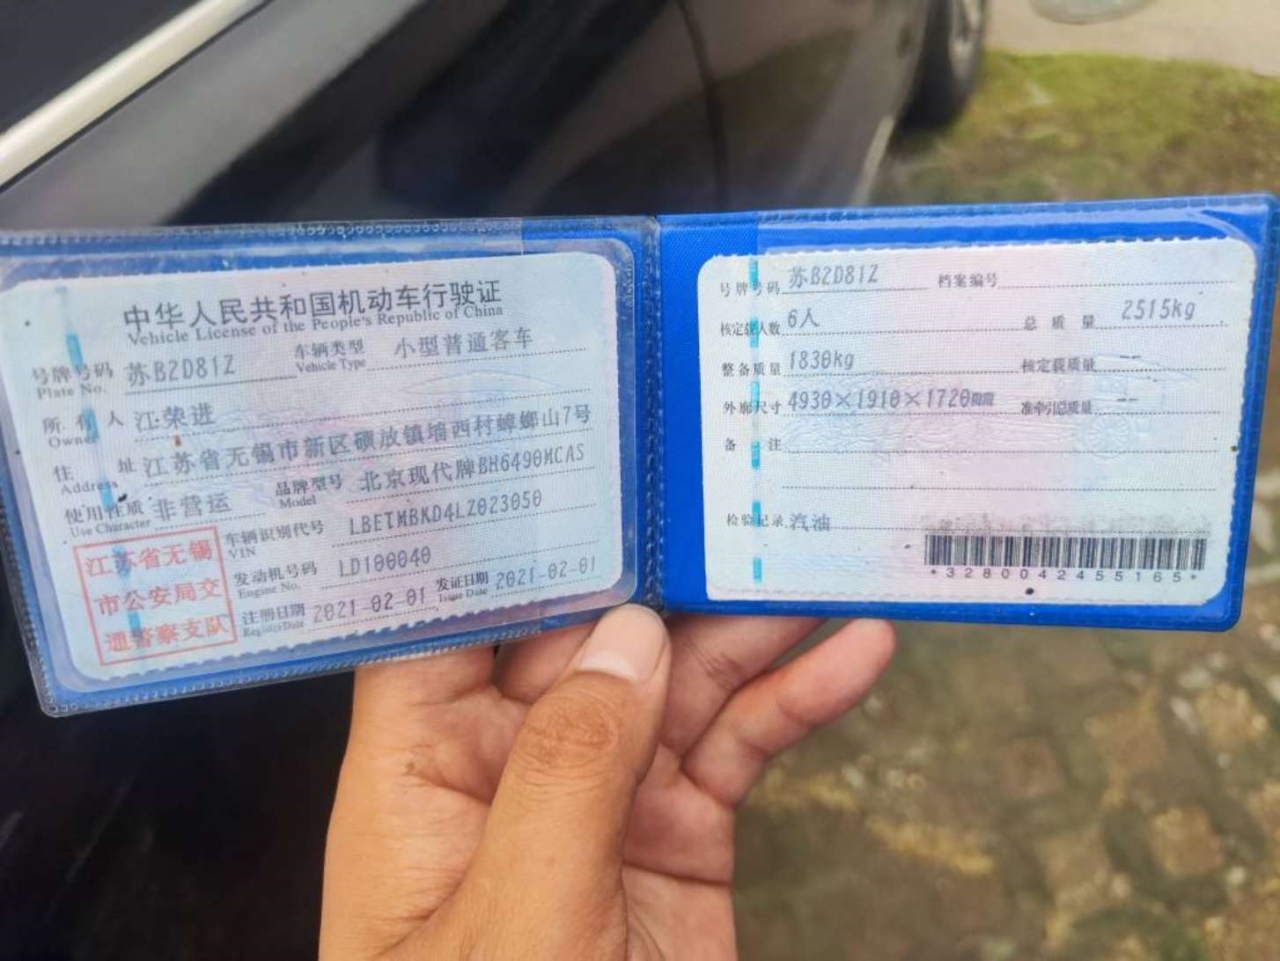 中华人民共和国机动车行驶证
Vehicle License of the People's Republic of China
号牌号码 苏B2D81Z 车辆类型 小型普通客车
Plate No. Vehicle Type
所有人 江荣进
Owner
住址 江苏省无锡市新区硕放镇墙西村蟑螂山7号
Address
使用性质 非营运 品牌型号 北京现代牌BH6490MCAS
Use Character Model
车辆识别代号 LBETMBKD4LZ023050
VIN
发动机号码 LD100040
Engine No.
注册日期 2021-02-01 发证日期 2021-02-01
Register Date Issue Date
江苏省无锡
市公安局交
通警察支队
号牌号码 苏B2D81Z 档案编号
核定载人数 6人 总质量 2515kg
整备质量 1830kg 核定载质量 --
外廓尺寸 4930×1910×1720mm 准牵引总质量 --
备注
检验记录 汽油
*3280042455165*